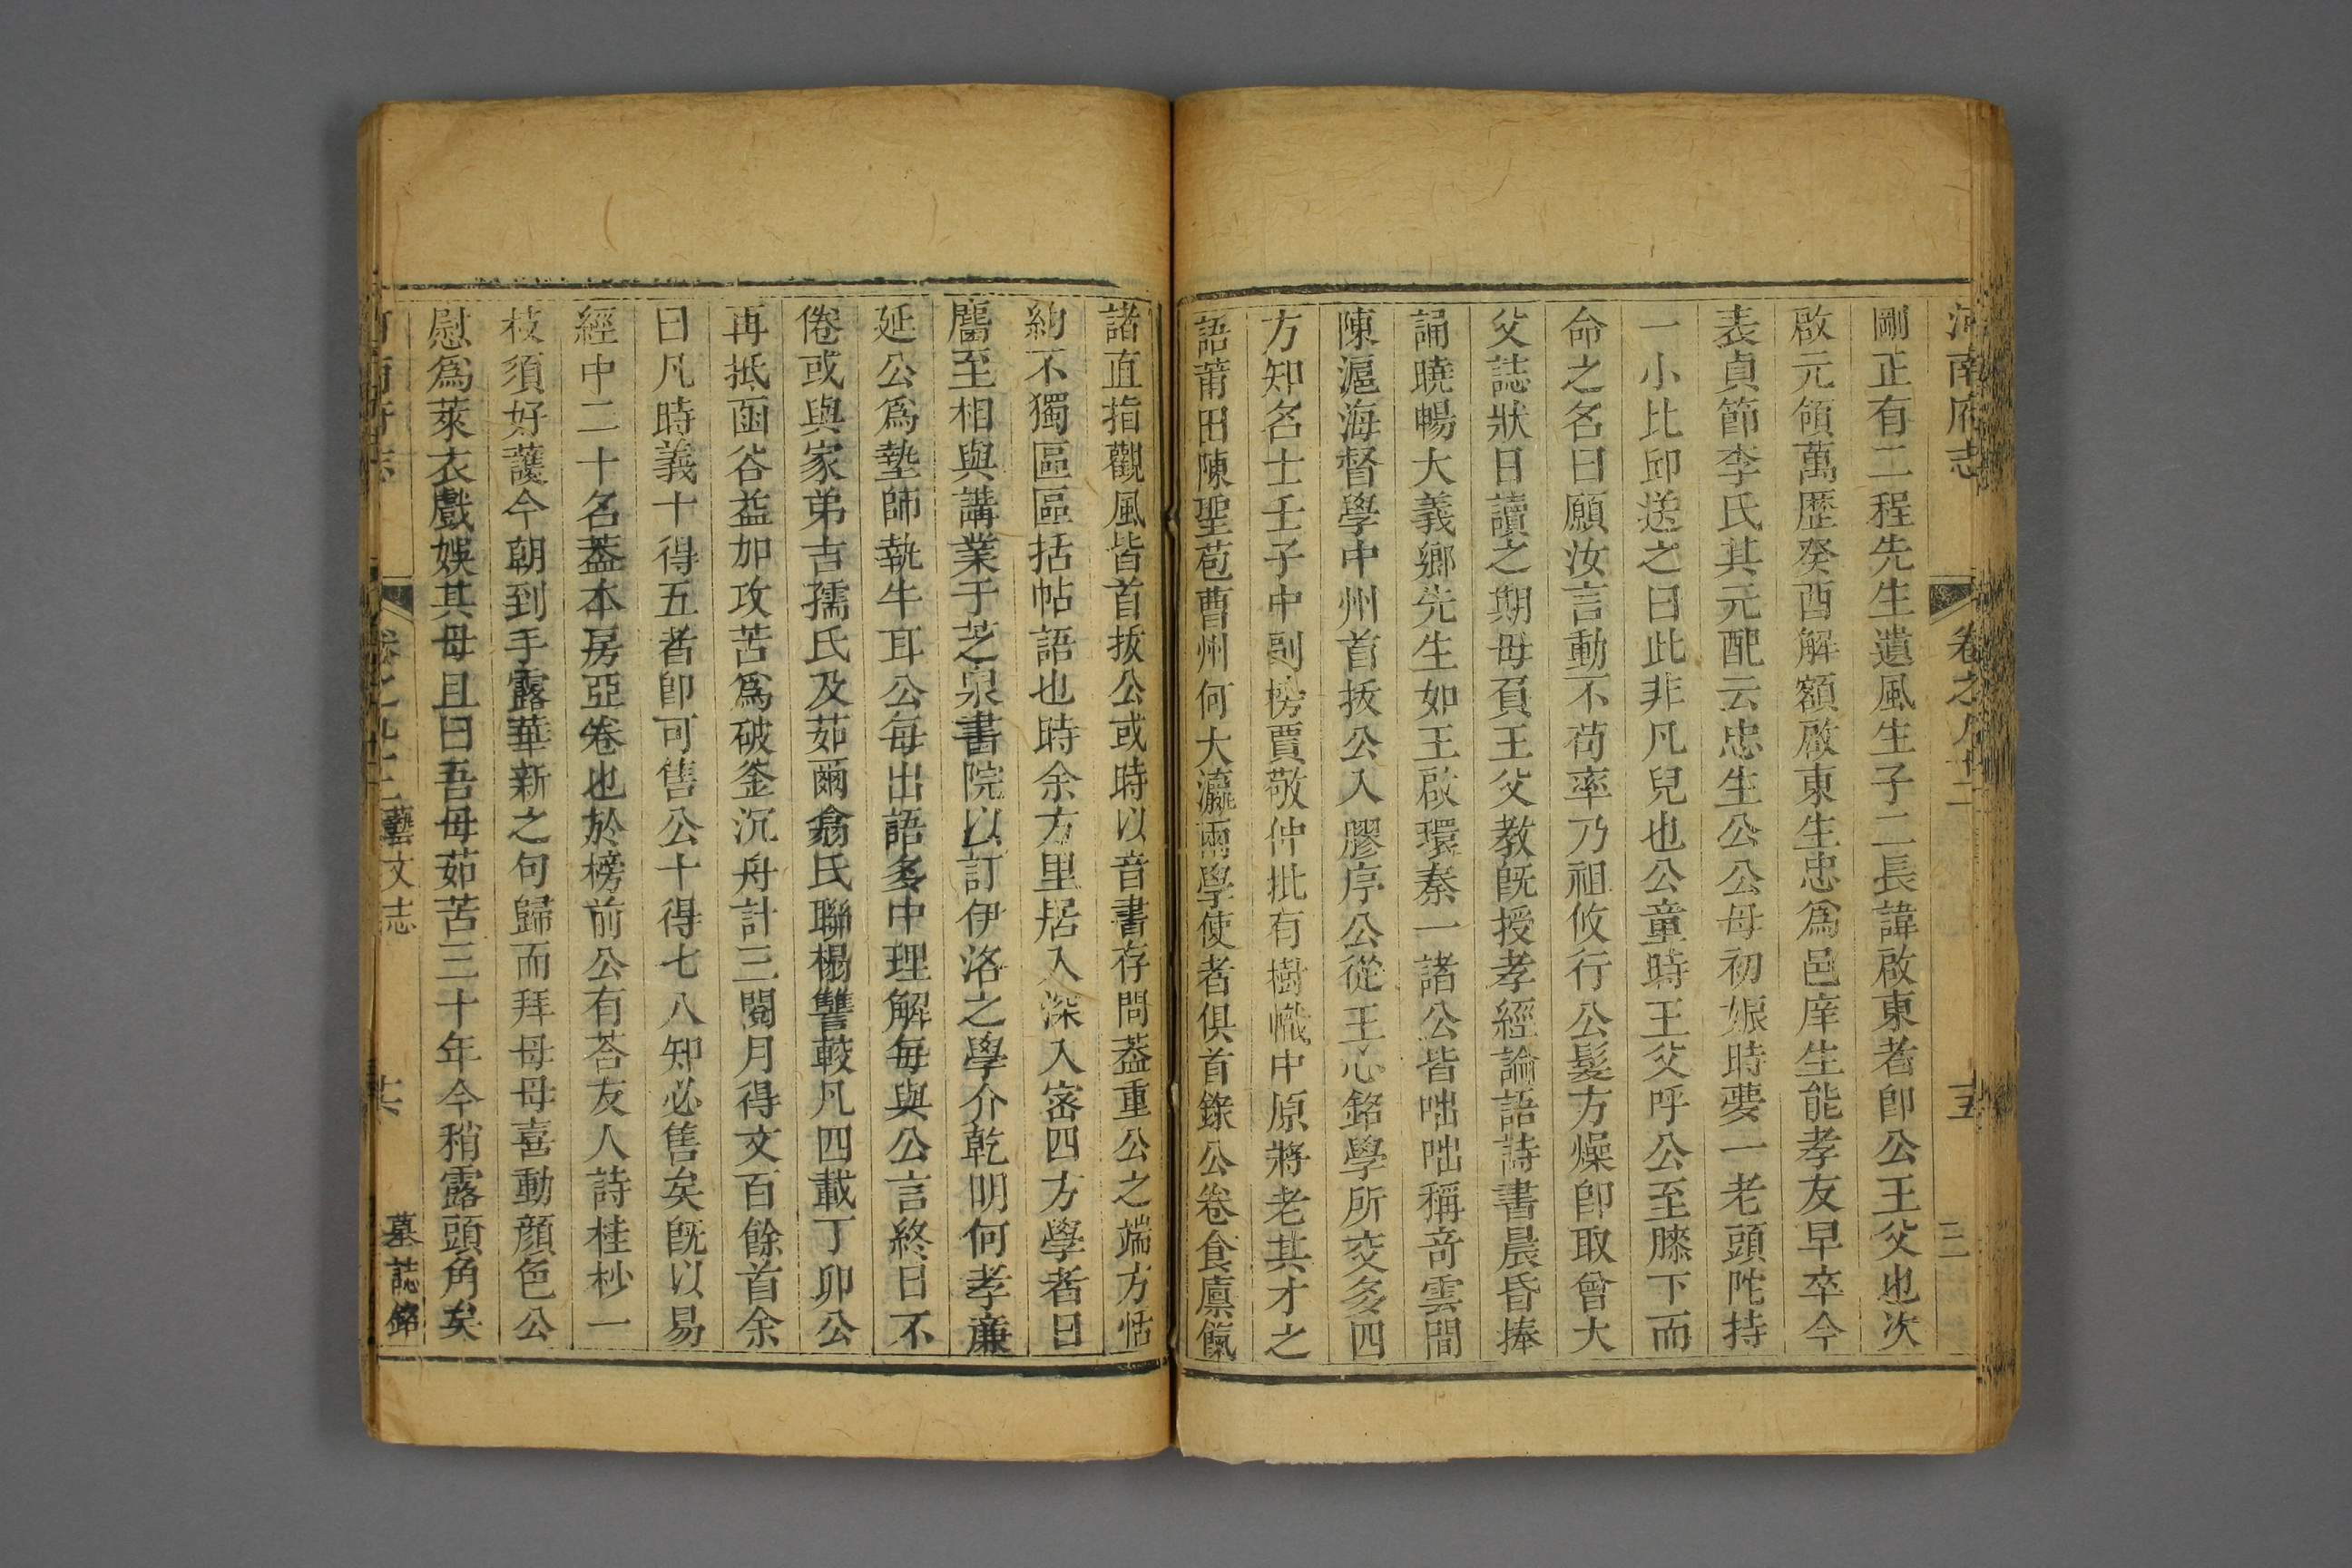 河南府志 卷之九十二 十五 三
剛正有二程先生遺風生子二長諱啟東者卽公王父也次
啟元領萬歷癸酉解額啟東生忠爲邑庠生能孝友早卒今
表貞節李氏其元配云忠生公公母初娠時夢一老頭陀持
一小比邱送之曰此非凡兒也公童時王父呼公至膝下而
命之名曰願汝言動不苟率乃祖攸行公髮方燥卽取曾大
父誌狀日讀之期毋負王父教旣授孝經論語詩書晨昏捧
誦曉暢大義鄉先生如王啟環秦一諸公皆咄咄稱奇雲間
陳滬海督學中州首拔公入膠序公從王心銘學所交多四
方知名士壬子中副榜賈敬仲批有樹幟中原將老其才之
語莆田陳聖苞曹州何大瀛兩學使者俱首錄公卷食廩餼
諸直指觀風皆首拔公或時以音書存問葢重公之端方恬
納不獨區區括帖語也時余方里居入深入密四方學者日
麕至相與講業于芝泉書院以訂伊洛之學介乾明何孝廉
延公爲塾師執牛耳公每出語多中理解每與公言終日不
倦或與家弟吉孺氏及茹薾翕氏聯榻讐較凡四載丁卯公
再抵函谷益加攻苦爲破釜沉舟計三閱月得文百餘首余
曰凡時義十得五者卽可售公十得七八知必售矣旣以易
經中二十名葢本房亞卷也於榜前公有荅友人詩桂杪一
枝須好護今朝到手露華新之句歸而拜母母喜動顏色公
慰爲萊衣戲娛其母且曰吾母茹苦三十年今稍露頭角矣
藝文志 墓誌銘